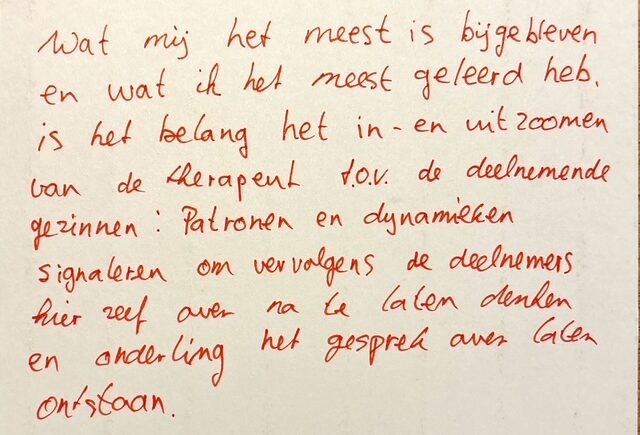 Wat mij het meest is bijgebleven
en wat ik het meest geleerd heb,
is het belang het in- en uitzoomen
van de therapeut t.o.v. de deelnemende
gezinnen: Patronen en dynamieken
signaleren om vervolgens de deelnemers
hier zelf over na te laten denken
en onderling het gesprek over laten
ontstaan.